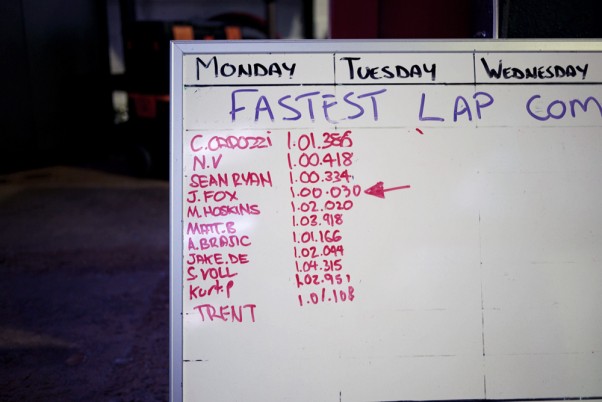 MONDAY TUESDAY WEDNESDAY
FASTEST LAP COM
1.01.385
N.V 1.00.418
SEAN RYAN 1.00.334
J.FOX 1.00.030
M.HOSKINS 1.02.020
MATT.B 1.03.918
A.BRASIC 1.01.166
JAKE.DE 1.02.044
S VOLL 1.04.315
Kurt.P 1.02.951
TRENT 1.01.108